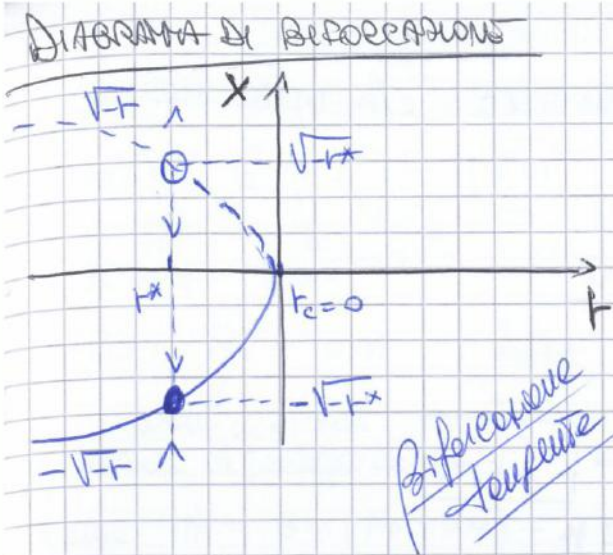 DIAGRAMMA DI BIFORCAZIONE
X
√-r
√-r*
r*
r_c=0
r
-√-r*
-√-r
Biforcazione
tangente